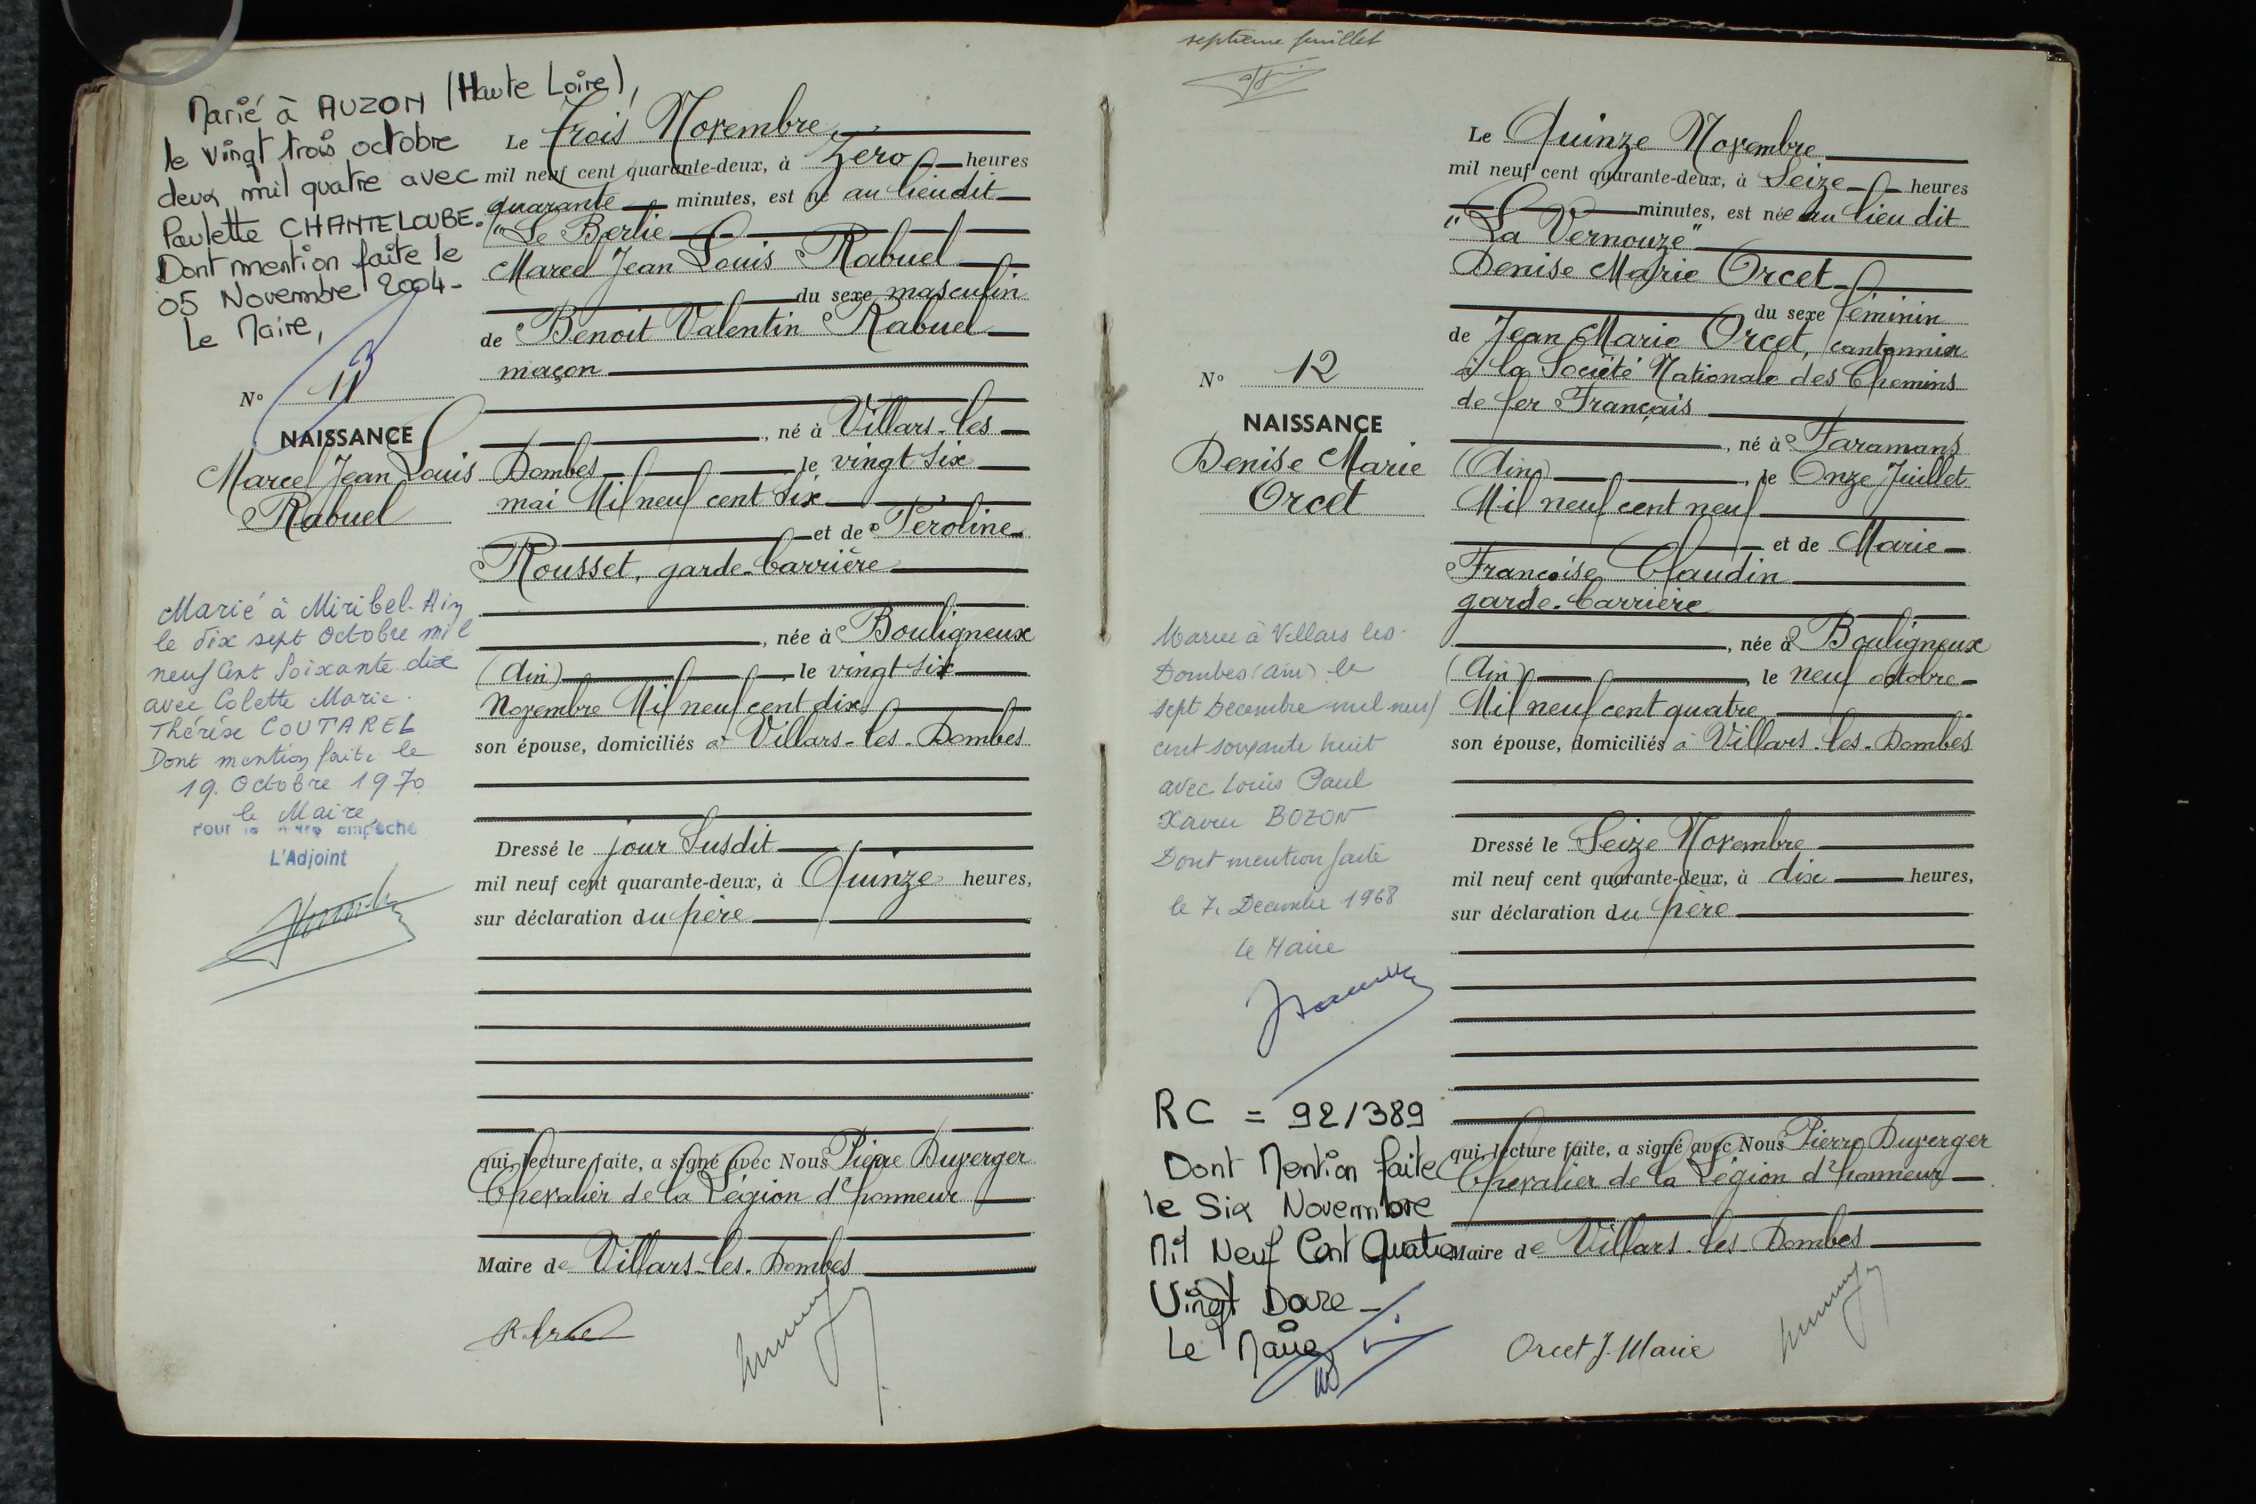 Marié à AUZON (Haute Loire),
le vingt trois octobre
deux mil quatre avec
Paulette CHANTELOUBE.
Dont mention faite le
05 Novembre 2004-
Le Maire,
N° 11
NAISSANCE
Marcel Jean Louis
Rabuel
Marié à Miribel-Ain
le dix sept Octobre mil
neuf Cent Soixante dix
avec Colette Marie
Thérèse COUTAREL
Dont mention faite le
19. Octobre 1970
le Maire
Pour le Maire empêché
L'Adjoint
Le Trois Novembre
mil neuf cent quarante-deux, à Zéro heures
quarante minutes, est né au lieu dit
"Le Berlie
Marcel Jean Louis Rabuel
du sexe masculin
de Benoit Valentin Rabuel
maçon
, né à Villars-les
Dombes le vingt six
mai Mil neuf cent Six
et de Péroline
Rousset, garde-barrière
, née à Bouligneux
(Ain) le vingt six
Novembre Mil neuf cent dix
son épouse, domiciliés à Villars-les-Dombes
Dressé le jour Susdit
mil neuf cent quarante-deux, à Quinze heures,
sur déclaration du père
qui, lecture faite, a signé avec Nous Pierre Duverger
Chevalier de la Légion d'honneur
Maire de Villars-les-Dombes
septième feuillet
N° 12
NAISSANCE
Denise Marie
Orcet
Mariée à Villars les
Dombes (Ain) le
sept Décembre mil neuf
cent soixante huit
avec Louis Paul
Xavier BOZON
Dont mention faite
le 7. Décembre 1968
Le Maire
RC = 92/389
Dont Mention faite
le Six Novembre
Mil Neuf Cent Quatre
Vingt Douze-
Le Maire
Le Quinze Novembre
mil neuf cent quarante-deux, à Seize heures
minutes, est née au lieu dit
"La Vernouze"
Denise Marie Orcet
du sexe féminin
de Jean Marie Orcet, cantonnier
à la Société Nationale des Chemins
de fer Français
, né à Faramans
(Ain), le Onze Juillet
Mil neuf cent neuf
et de Marie
Françoise Claudin
garde-barrière
, née à Bouligneux
(Ain), le neuf octobre
Mil neuf cent quatre
son épouse, domiciliés à Villars-les-Dombes
Dressé le Seize Novembre
mil neuf cent quarante-deux, à dix heures,
sur déclaration du père
qui, lecture faite, a signé avec Nous Pierre Duverger
Chevalier de la Légion d'honneur
Maire de Villars-les-Dombes
Orcet J-Marie